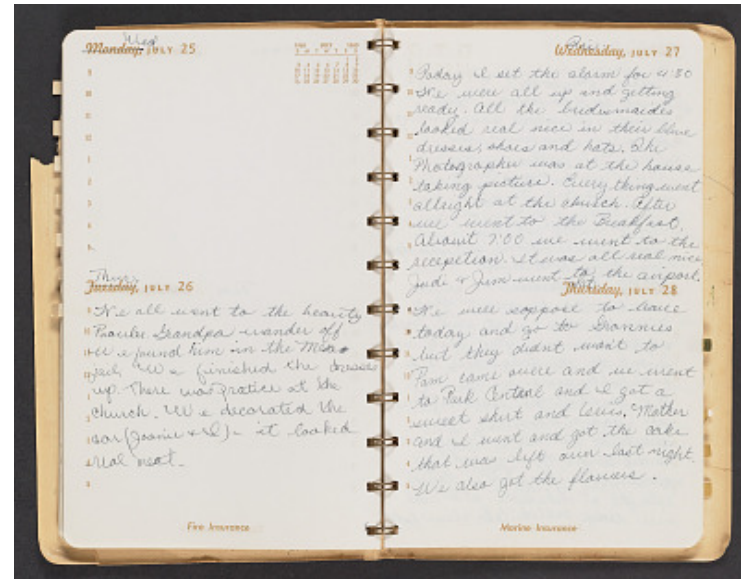 Wed
Monday, JULY 25
Thur
Tuesday, JULY 26
We all went to the beauty
Parler. Grandpa wander off
we found him in the Mesa
jail. We finished the dresses
up. There was pratice at the
church. We decorated the
car (Joanie & I) - it looked
real neat.
Fire Insurance
Fri
Wednesday, JULY 27
Today I set the alarm for 4:30
We were all up and getting
ready. All the bridesmaides
looked real nice in their blue
dresses, shoes and hats. The
Photographer was at the house
taking picture. Every thing went
allright at the church. After
we went to the Breakfast.
About 7:00 we went to the
recepetion. It was all real nice
Judi & Jim went to the airport.
Thursday, JULY 28
We were soppose to leave
today and go to Grannies
but they didnt want to
Pam came over and we went
to Park Central and I got a
sweet shirt and Levis. Mother
and I went and got the cake
that was left over last night.
We also got the flowers.
Marine Insurance